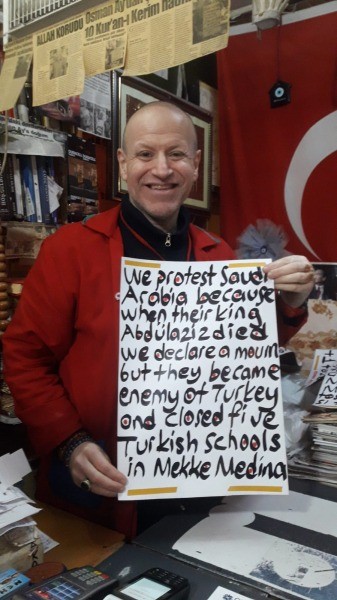 ALLAH KORUDU
Osman Aydın
10 Kur'an-ı Kerim
We protest Saudi
Arabia because
when their king
Abdülaziz died
we declare a mourn
but they became
enemy of Turkey
and closed five
Turkish schools
in Mekke Medina